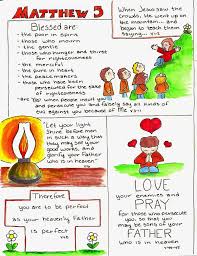 MATTHEW 5
Blessed are
- the poor in spirit
- those who mourn
- the gentle
- those who hunger and thirst
for righteousness
- the merciful
- the pure in heart
- the peacemakers
- those who have been
persecuted for the sake
of righteousness
- are you when people insult you
and persecute you and falsely say all kinds of
evil against you because of Me
When Jesus saw the
crowds, He went up on
the mountain... and
began to teach them
saying...
"Let your light
shine before men
in such a way that
they may see your
good works, and
glorify your Father
who is in heaven"
Therefore
you are to be perfect
as your heavenly Father
is perfect
LOVE
your enemies and
PRAY
for those who persecute
you, so that you may
be sons of your
FATHER
who is in heaven